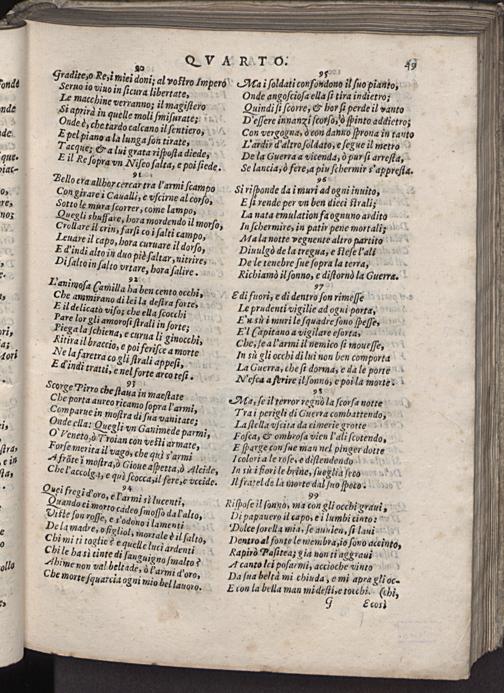 QVARTO.
49
90
Gradite, o Re, i miei doni; al vostro Impero
Seruo io viuo in sicura libertate,
Le macchine verranno; il magistero
Si aprirà in quelle moli smisurate;
Onde è, che tardo calcano il sentiero,
E pel piano a la lunga son tirate,
Tacque; & a lui grata risposta diede,
E il Re sopra vn Niseo salta, e poi siede.
91
Bello era allhor cercar tra l'armi scampo
Con girare i Caualli, e vscirne al corso,
Sotto le mura scorrer, come lampo,
Quegli sbuffare, hora mordendo il morso,
Crollare il crin, farsi co i salti campo,
Leuare il capo, hora curuare il dorso,
E d'indi alto in duo piè saltar, nitrire,
Di salto in salto vrtare, hora salire.
92
L'animosa Camilla ha ben cento occhi,
Che ammirano di lei la destra forte,
E il delicato viso; che ella scocchi
Pare lor gli amorosi strali in sorte;
Piega la schiena, e curua li ginocchi,
Ritira il braccio, e poi ferisce a morte
Ne la faretra co gli strali appesi,
E d'indi tratti, e nel forte arco tesi.
93
Scorge Pirro che staua in maestate
Che porta aureo ricamo sopra l'armi,
Comparue in mostra di sua vanitate;
Onde ella: Quegli vn Ganimede parmi,
O Veneto, ò Troian con vesti armate,
Forse merita il vago, che quì s'armi
A frate i mostra, ò Gioue aspetta, ò Alcide,
Che l'accolga, e quì scocca, il fere, e vccide.
94
Quei fregi d'oro, e l'armi sì lucenti,
Quando ei morto cadeo smosso da l'alto,
Vitile son rosse, e s'odono i lamenti
De la madre, o figliol, mortale è il salto,
Chi mi ti toglie? e quelle luci ardenti
Chi le ha sì tinte di sanguigno smalto?
Ahime non val beltade, ò l'armi d'oro,
Che morte squarcia ogni mio bel lauoro.
95
Ma i soldati confondono il suo pianto,
Onde angosciosa ella si tira indietro;
Quindi si scorre, & hor si perde il vanto
D'essere innanzi scorso, ò spinto addietro;
Con vergogna, ò con danno sprona in tanto
L'ardir d'altro soldato, e segue il metro
De la Guerra a vicenda, ò pur si arresta,
Se lancia, ò fere, a piu schermir s'appresta.
96
Si risponde da i muri ad ogni inuito,
E si rende per vn ben dieci strali;
La nata emulation fa ognuno ardito
In schermire, in patir pene mortali;
Ma la notte regnente altro partito
Diuulgò de la tregua, e stese l'ali
De le tenebre sue sopra la terra,
Richiamò il sonno, e distornò la Guerra.
97
E di fuori, e di dentro son rimesse
Le prudenti vigilie ad ogni porta,
E 'n sù i muri le squadre sono spesse,
E 'l Capitano a vigilare esorta,
Che, se a l'armi il nemico si mouesse,
In sù gli occhi di lui non ben comporta
La Guerra, che si dorma, e da le porte
N'esca a ferire il sonno, e poi la morte.
98
Ma, se il terror regnò la scorsa notte
Tra i perigli di Guerra combattendo,
La stella vscita da cimerie grotte
Fosca, & ombrosa vien l'ali scotendo,
E sparge con sue man nel pinger dotte
I coloria le rose, e distendendo
In sù i fiori le brine, sueglia seco
Il fratel de la morte dal suo speco.
99
Rispose il sonno, ma con gli occhi graui,
Di papauero il capo, e i lumbi cinto:
Dolce sorella mia, se auuien, si laui
Dentro al fonte le membra, io sono accinto,
Rapirò Pasitea; già non ti aggraui
A canto lei posarmi, accioche vinto
Da sua beltà mi chiuda, e mi apra gli oc-
E con la bella man mi desti, e tocchi. (chi,
G
E così